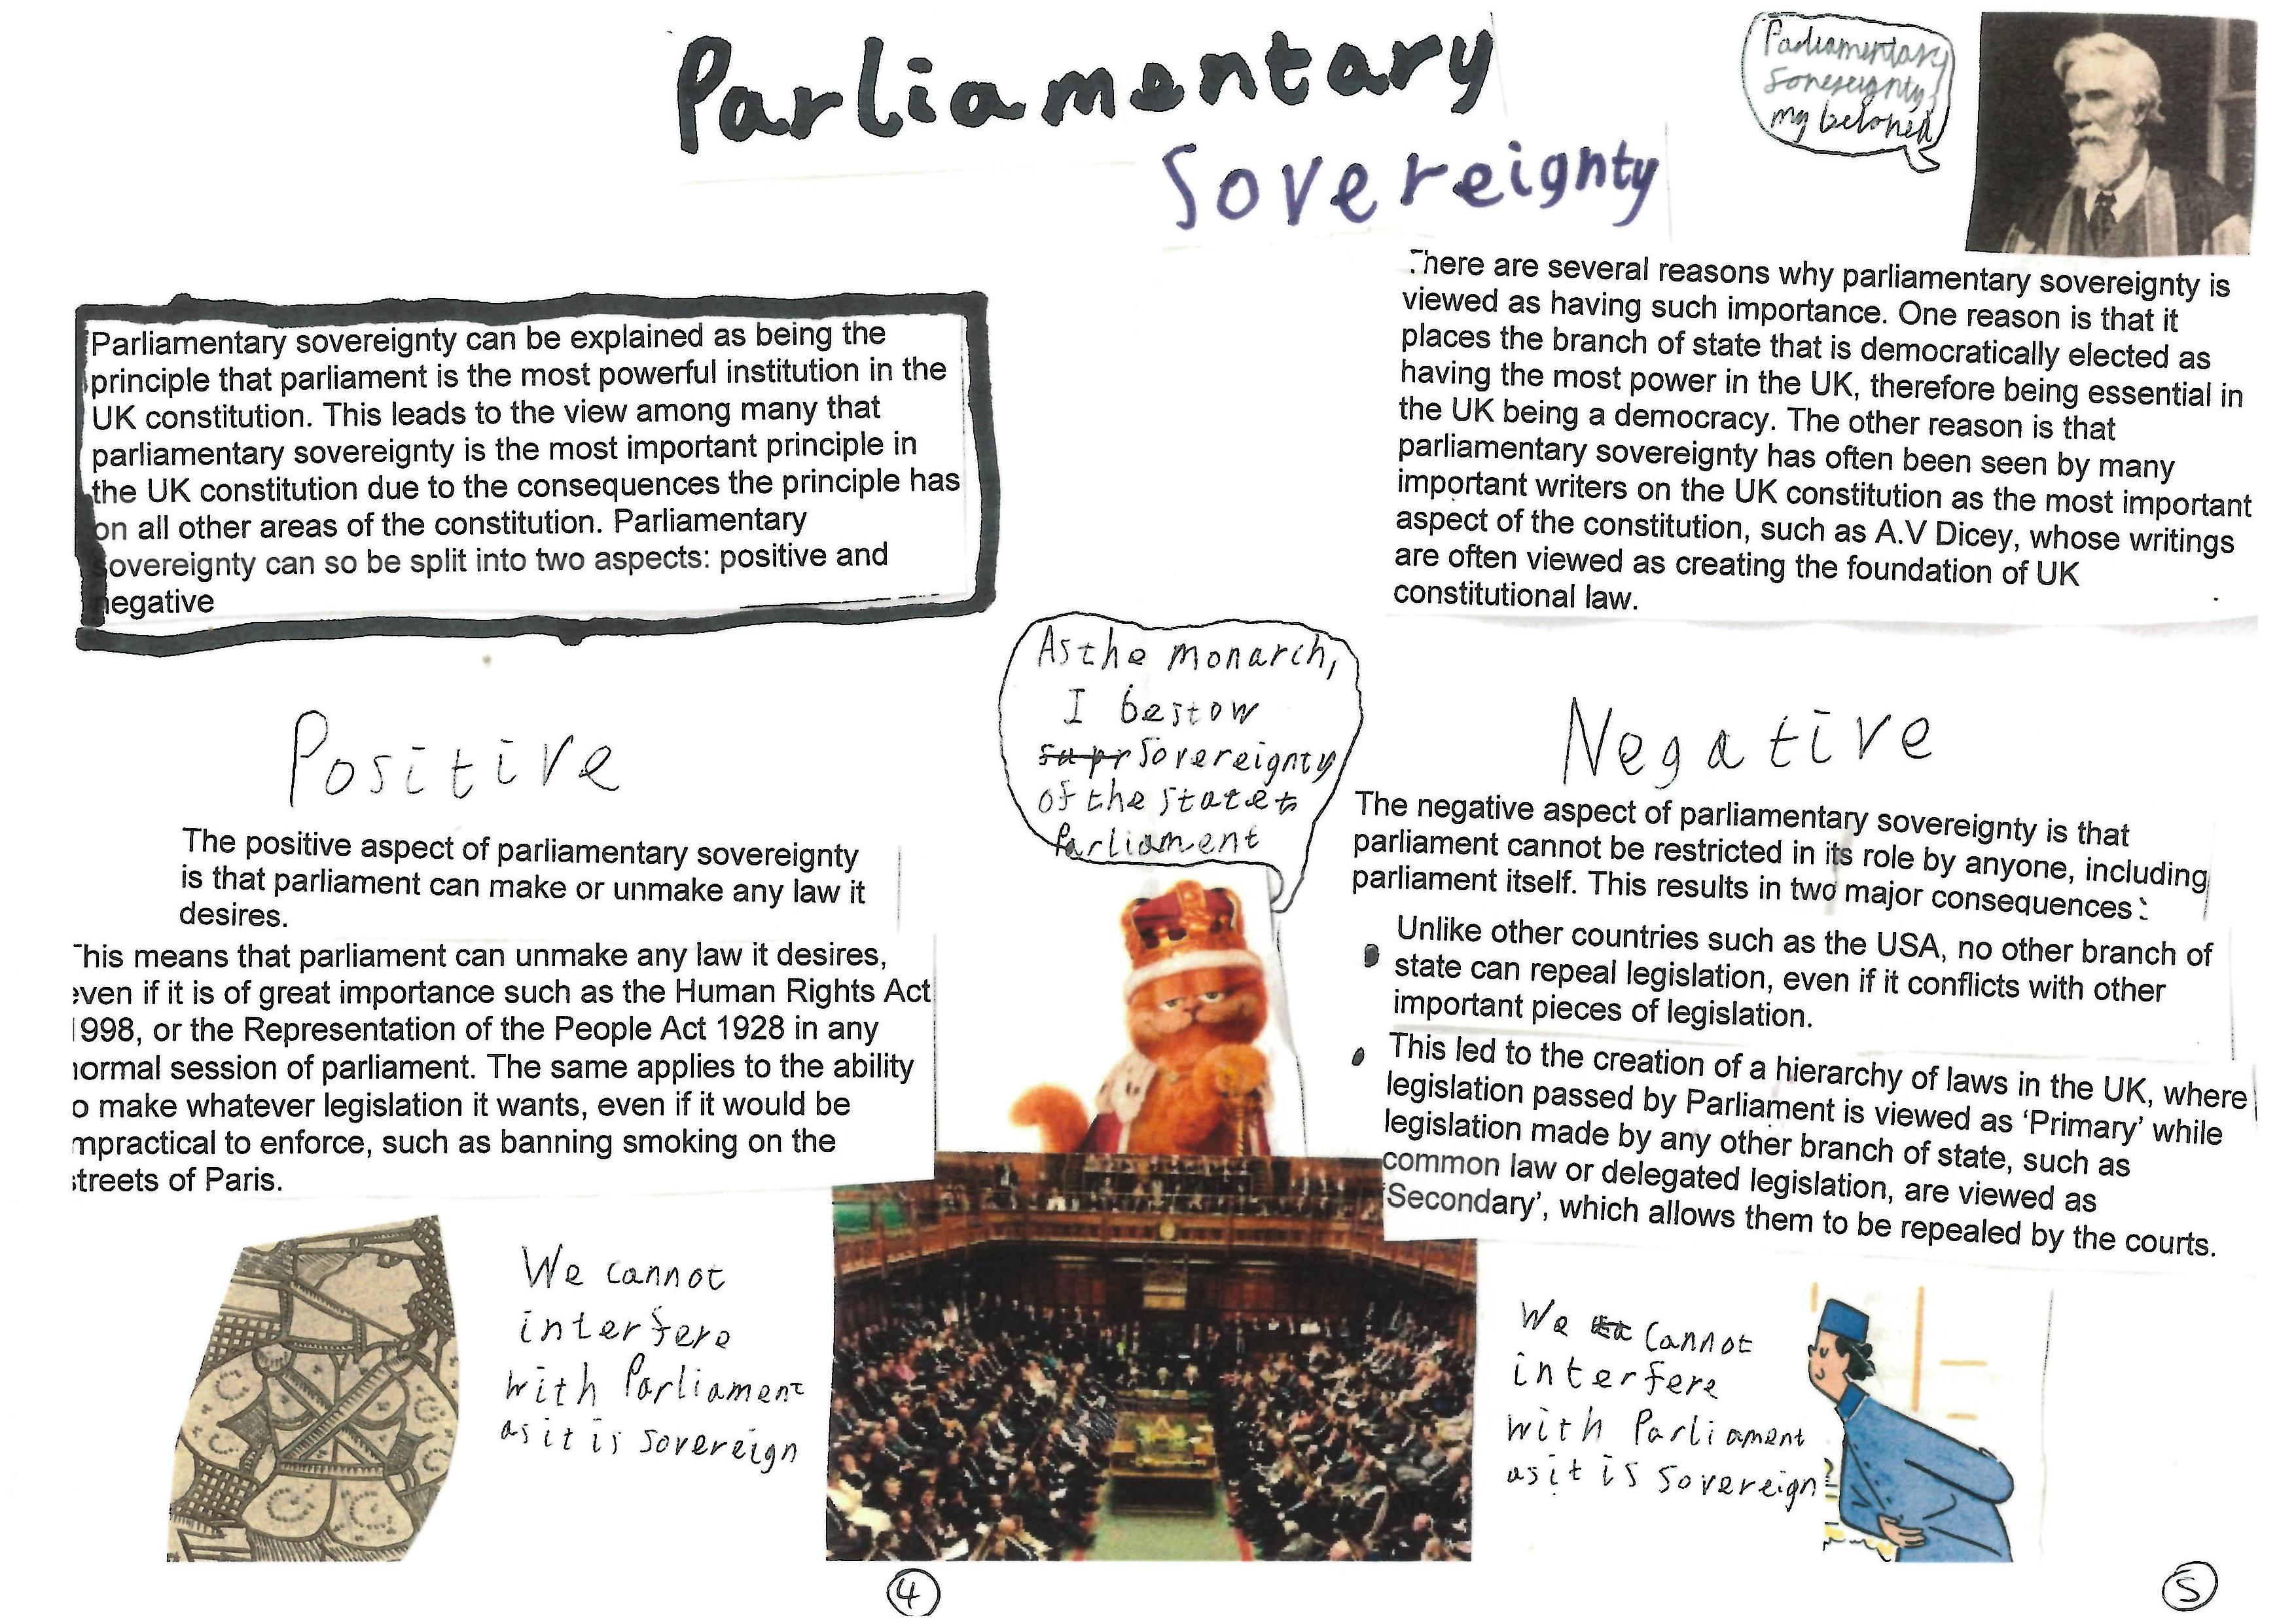 Parliamentary
Sovereignty
Parliamentary
sovereignty
my beloved
Parliamentary sovereignty can be explained as being the
principle that parliament is the most powerful institution in the
UK constitution. This leads to the view among many that
parliamentary sovereignty is the most important principle in
the UK constitution due to the consequences the principle has
on all other areas of the constitution. Parliamentary
sovereignty can so be split into two aspects: positive and
negative
There are several reasons why parliamentary sovereignty is
viewed as having such importance. One reason is that it
places the branch of state that is democratically elected as
having the most power in the UK, therefore being essential in
the UK being a democracy. The other reason is that
parliamentary sovereignty has often been seen by many
important writers on the UK constitution as the most important
aspect of the constitution, such as A.V Dicey, whose writings
are often viewed as creating the foundation of UK
constitutional law.
As the monarch,
I bestow
supr sovereignty
of the state to
Parliament
Positive
The positive aspect of parliamentary sovereignty
is that parliament can make or unmake any law it
desires.
This means that parliament can unmake any law it desires,
even if it is of great importance such as the Human Rights Act
1998, or the Representation of the People Act 1928 in any
normal session of parliament. The same applies to the ability
to make whatever legislation it wants, even if it would be
impractical to enforce, such as banning smoking on the
streets of Paris.
We cannot
interfere
with Parliament
as it is sovereign
Negative
The negative aspect of parliamentary sovereignty is that
parliament cannot be restricted in its role by anyone, including
parliament itself. This results in two major consequences:
• Unlike other countries such as the USA, no other branch of
state can repeal legislation, even if it conflicts with other
important pieces of legislation.
• This led to the creation of a hierarchy of laws in the UK, where
legislation passed by Parliament is viewed as 'Primary' while
legislation made by any other branch of state, such as
common law or delegated legislation, are viewed as
'Secondary', which allows them to be repealed by the courts.
We cannot
interfere
with Parliament
as it is sovereign
4
5